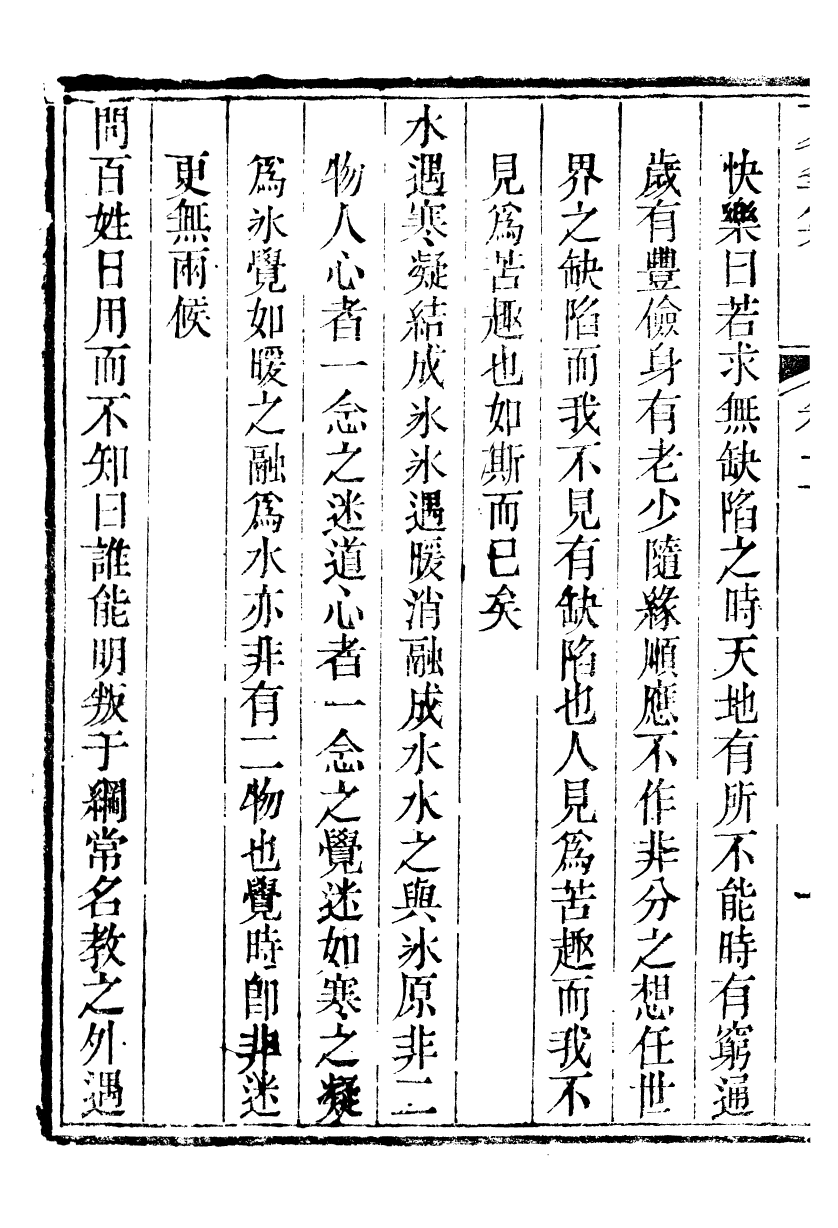 快樂曰若求無缺陷之時天地有所不能時有窮通
歲有豐儉身有老少隨緣順應不作非分之想任世
界之缺陷而我不見有缺陷也人見爲苦趣而我不
見爲苦趣也如斯而已矣
水遇寒凝結成氷氷遇暖消融成水水之與氷原非二
物人心者一念之迷道心者一念之覺迷如寒之凝
爲氷覺如暖之融爲水亦非有二物也覺時卽非迷
更無兩候
問百姓日用而不知曰誰能明叛于綱常名教之外遇